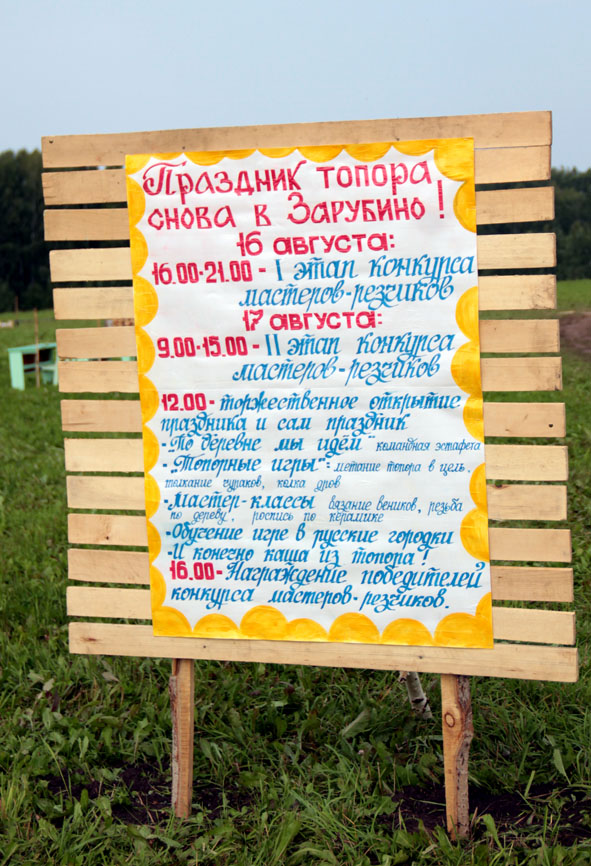 Праздник топора
снова в Зарубино!
16 августа:
16.00-21.00 - I этап конкурса
мастеров-резчиков
17 августа:
9.00-15.00 - II этап конкурса
мастеров-резчиков
12.00 - торжественное открытие
праздника и сам праздник
-"По деревне мы идём" командная эстафета
-"Топорные игры": метание топора в цель,
толкание чураков, колка дров
-Мастер-классы вязание веников, резьба
по дереву, роспись по керамике
-Обучение игре в русские городки
-И конечно каша из топора!
16.00 - Награждение победителей
конкурса мастеров-резчиков.